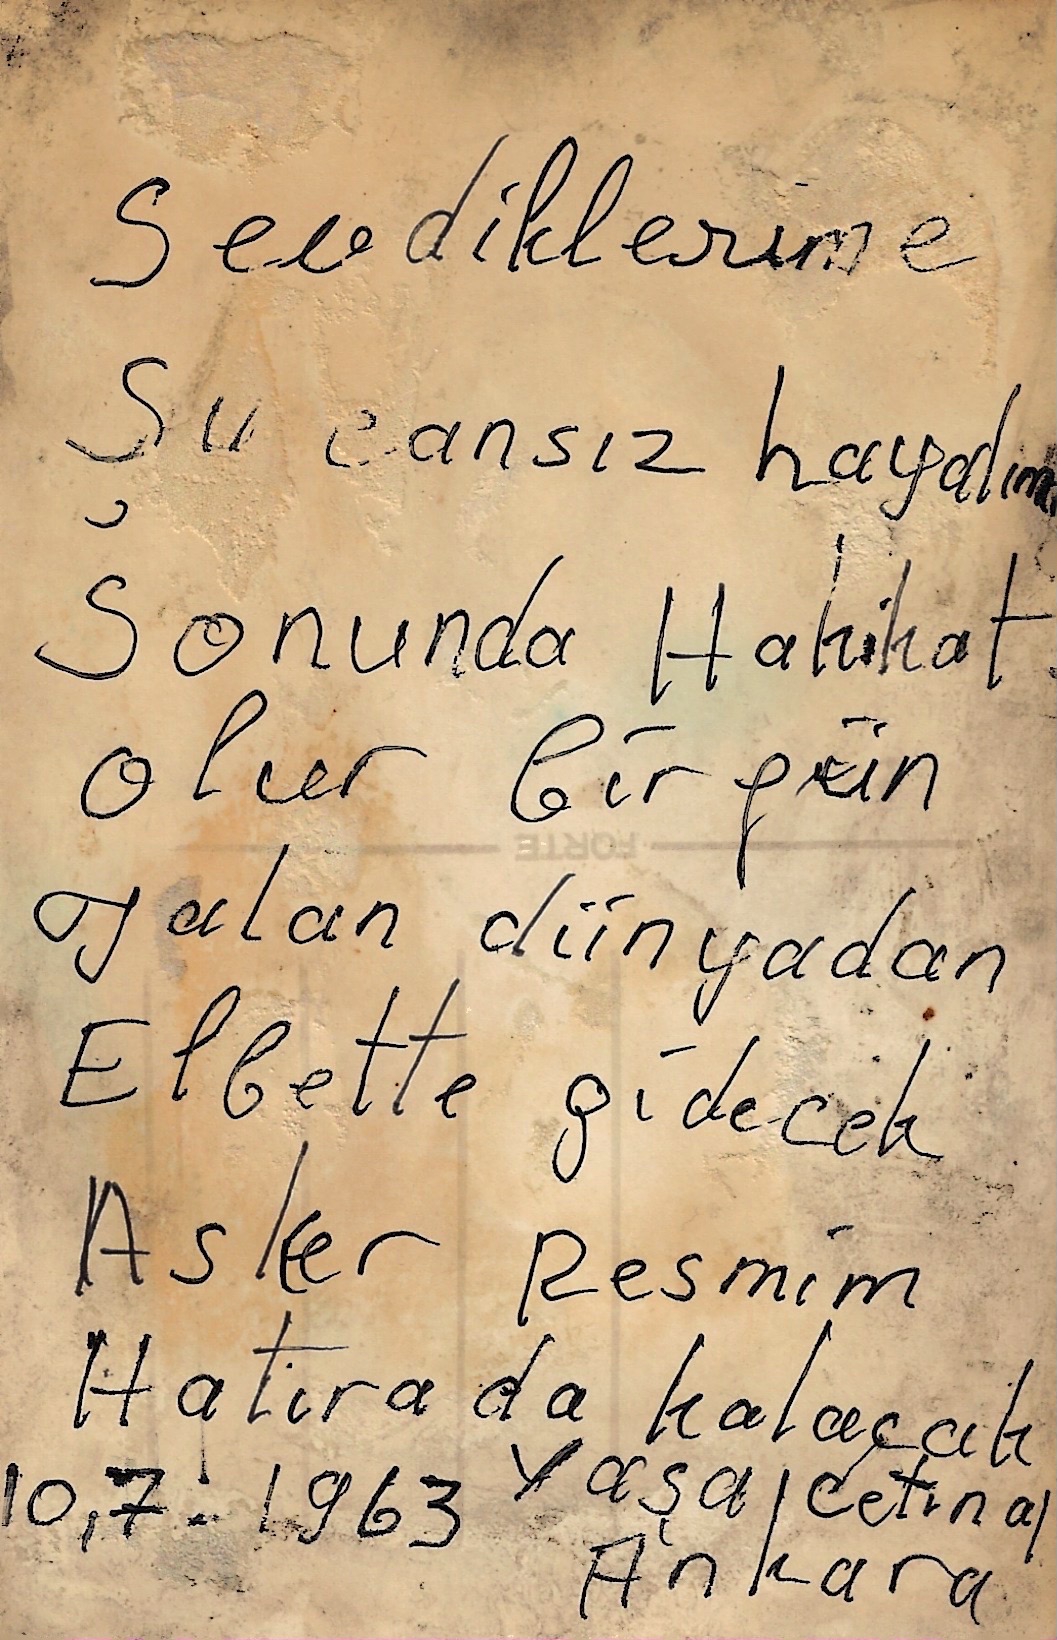 Sevdiklerime
Şu cansız hayalım
Sonunda Hakikat
olur bir gün
FORTE
yalan dünyadan
Elbette gidecek
Asker Resmim
Hatırada kalacak
10,7-1963 Cetinal
Ankara